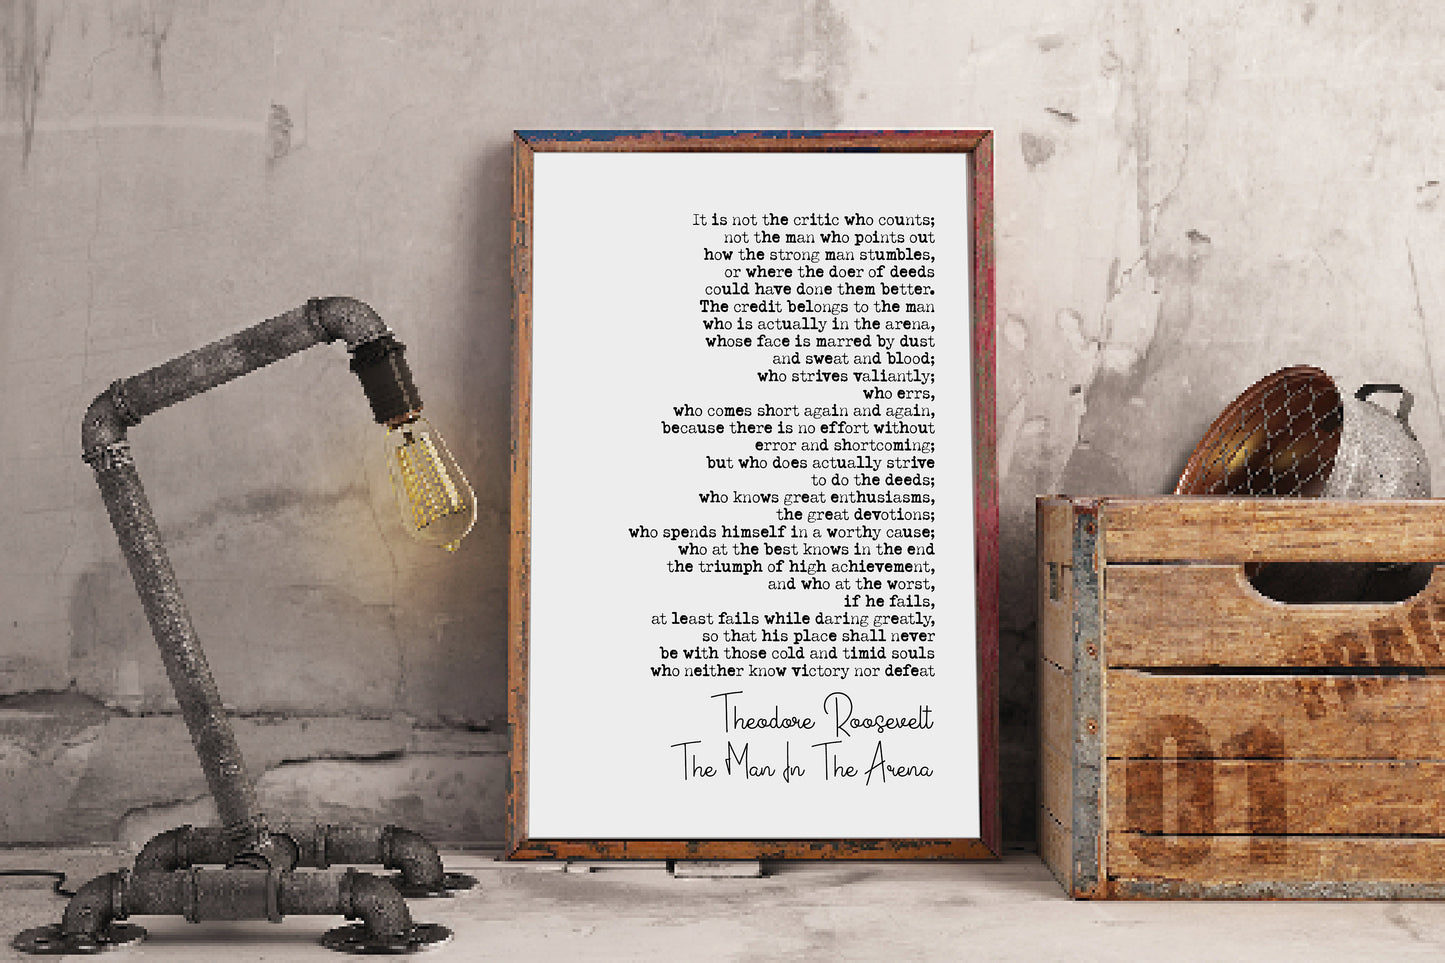 It is not the critic who counts;
not the man who points out
how the strong man stumbles,
or where the doer of deeds
could have done them better.
The credit belongs to the man
who is actually in the arena,
whose face is marred by dust
and sweat and blood;
who strives valiantly;
who errs,
who comes short again and again,
because there is no effort without
error and shortcoming;
but who does actually strive
to do the deeds;
who knows great enthusiasms,
the great devotions;
who spends himself in a worthy cause;
who at the best knows in the end
the triumph of high achievement,
and who at the worst,
if he fails,
at least fails while daring greatly,
so that his place shall never
be with those cold and timid souls
who neither know victory nor defeat
Theodore Roosevelt
The Man In The Arena
01